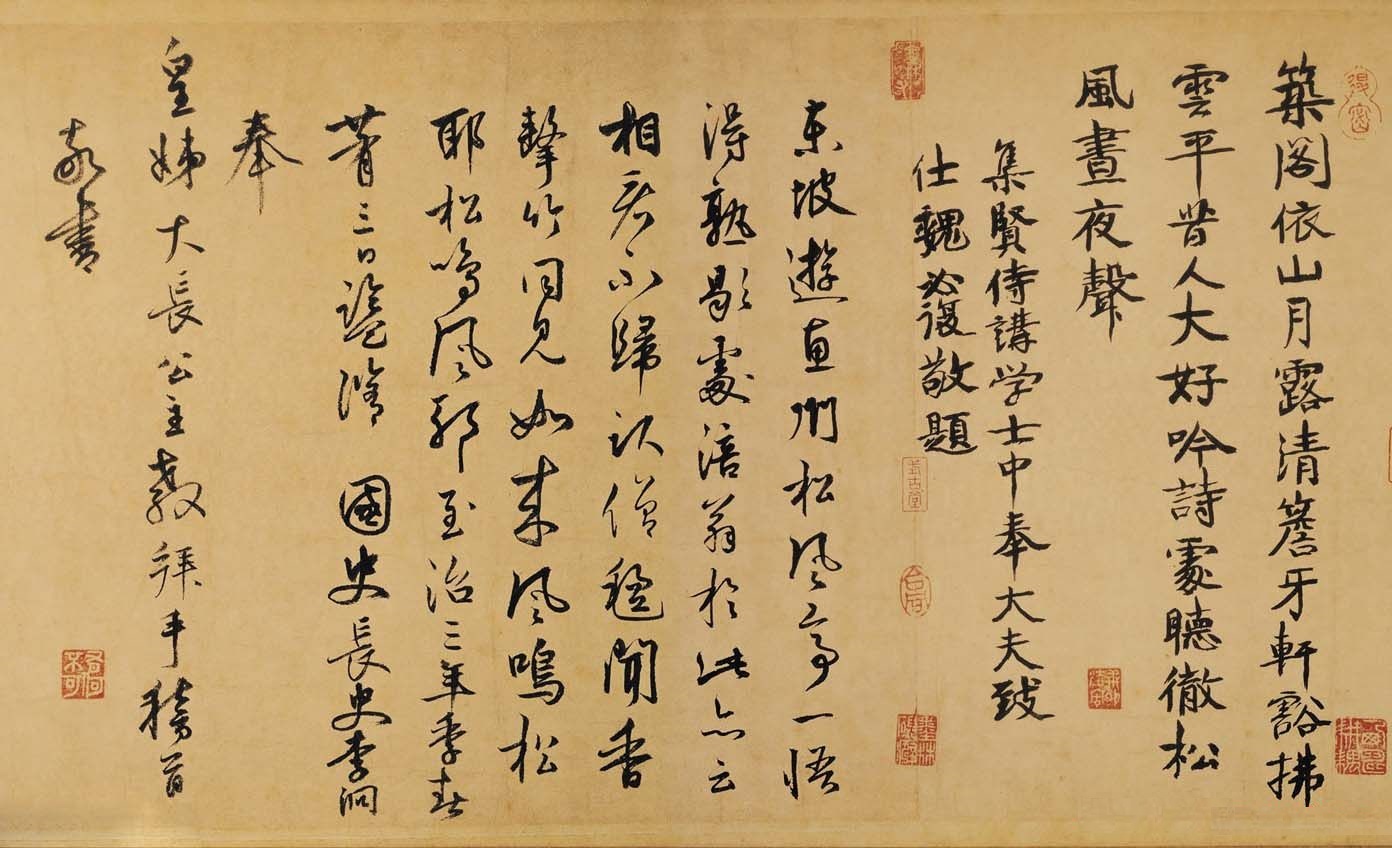 築閣依山月露清簷牙軒豁拂
雲平昔人大好吟詩處聽徹松
風晝夜聲
集賢侍講学士中奉大夫致
仕魏必復敬題
東坡遊惠州松風亭一悟
得熟歇處涪翁於此亦云
相不歸僧聞香
擊竹同見如來風鳴松
耶松鳴風耶至治三年季春
三日盥滌 國史長史李泂
奉
皇姊大長公主教拜手稽首
敬書